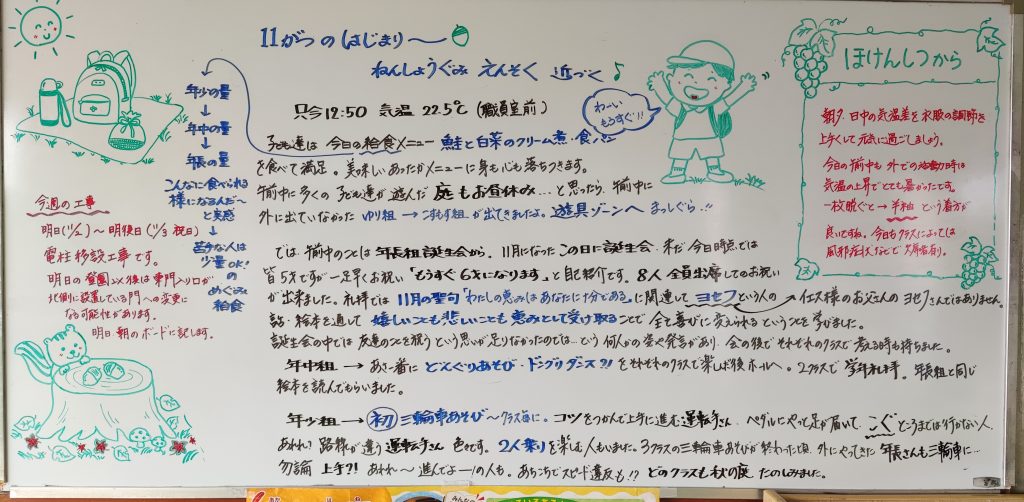 11がつのはじまり〜
ねんしょうぐみ えんそく 近づく♪
只今12:50 気温 22.5℃ (職員室前)
わーい
もうすぐ!!
子ども達は 今日の給食メニュー 鮭と白菜のクリーム煮・食パン
を食べて満足。美味しいあったかメニューに身も心も落ちつきます。
午前中に多くの子ども達が遊んだ 庭もお昼休み…と思ったら、午前中に
外に出ていなかった ゆり組 → こすもす組 が出てきましたよ。遊具ゾーンへ まっしぐら..!!
では、午前中のことは 年長組誕生会から。11月になったこの日に誕生会。未だ今日時点では
皆5才ですが一足早くお祝い「もうすぐ6才になります。」と自己紹介です。8人全員出席してのお祝い
が出来ました。礼拝では 11月の聖句「わたしの恵みはあなたに十分である。」に関連して ヨセフという人の
→イエス様のお父さんのヨセフさんではありません。
話・絵本を通して 嬉しいことも悲しいことも恵みとして受け取ることで 全て喜びに変えられるということを学びました。
誕生会の中では 友達のことを祝うという思いが足りなかったのでは…という 何人かの姿や発言があり、会の後でそれぞれのクラスで考える時も持ちました。
年中組 → あさ一番に どんぐりあそび・ドングリダンス?! をそれぞれのクラスで楽しんだ後ホールへ。2クラスで学年礼拝。年長組と同じ
絵本を読んでもらいました。
年少組 → 初 三輪車あそび〜クラス毎に。コツをつかんで上手に進む運転手さん、ペダルにやっと足が届いて、こぐとうまでは行かない人、
あれれ? 路線が違う運転手さん 色々です。2人乗りを楽しむ人もいました。3クラスの三輪車あそびが終わった頃、外にやってきた 年長さんも三輪車に…
勿論 上手?! あれれ〜 進んでよー!の人も。あちこちでスピード違反も!? どのクラスも秋の庭 たのしみました。
年少の量
↓
年中の量
↓
年長の量
こんなに食べられる
様になるんだ〜
と実感
↓
苦手な人は
少量OK!の
めぐみ
給食
今週の工事
明日(11/2)〜明後日(11/3 祝日)
電柱移設工事です。
明日の登園以後は専門入り口が
北側に設置している門への変更に
なる可能性があります。
明日・朝のボードに記します。
ほけんしつから
朝夕、日中の気温差を衣服の調節を
上手くして元気に過ごしましょう。
今日の午前中も外での活動時は
気温の上昇でとても暑かったです。
一枚脱ぐと→半袖という着方が
良いですね。今日もクラスによっては
風邪症状などで欠席有り。